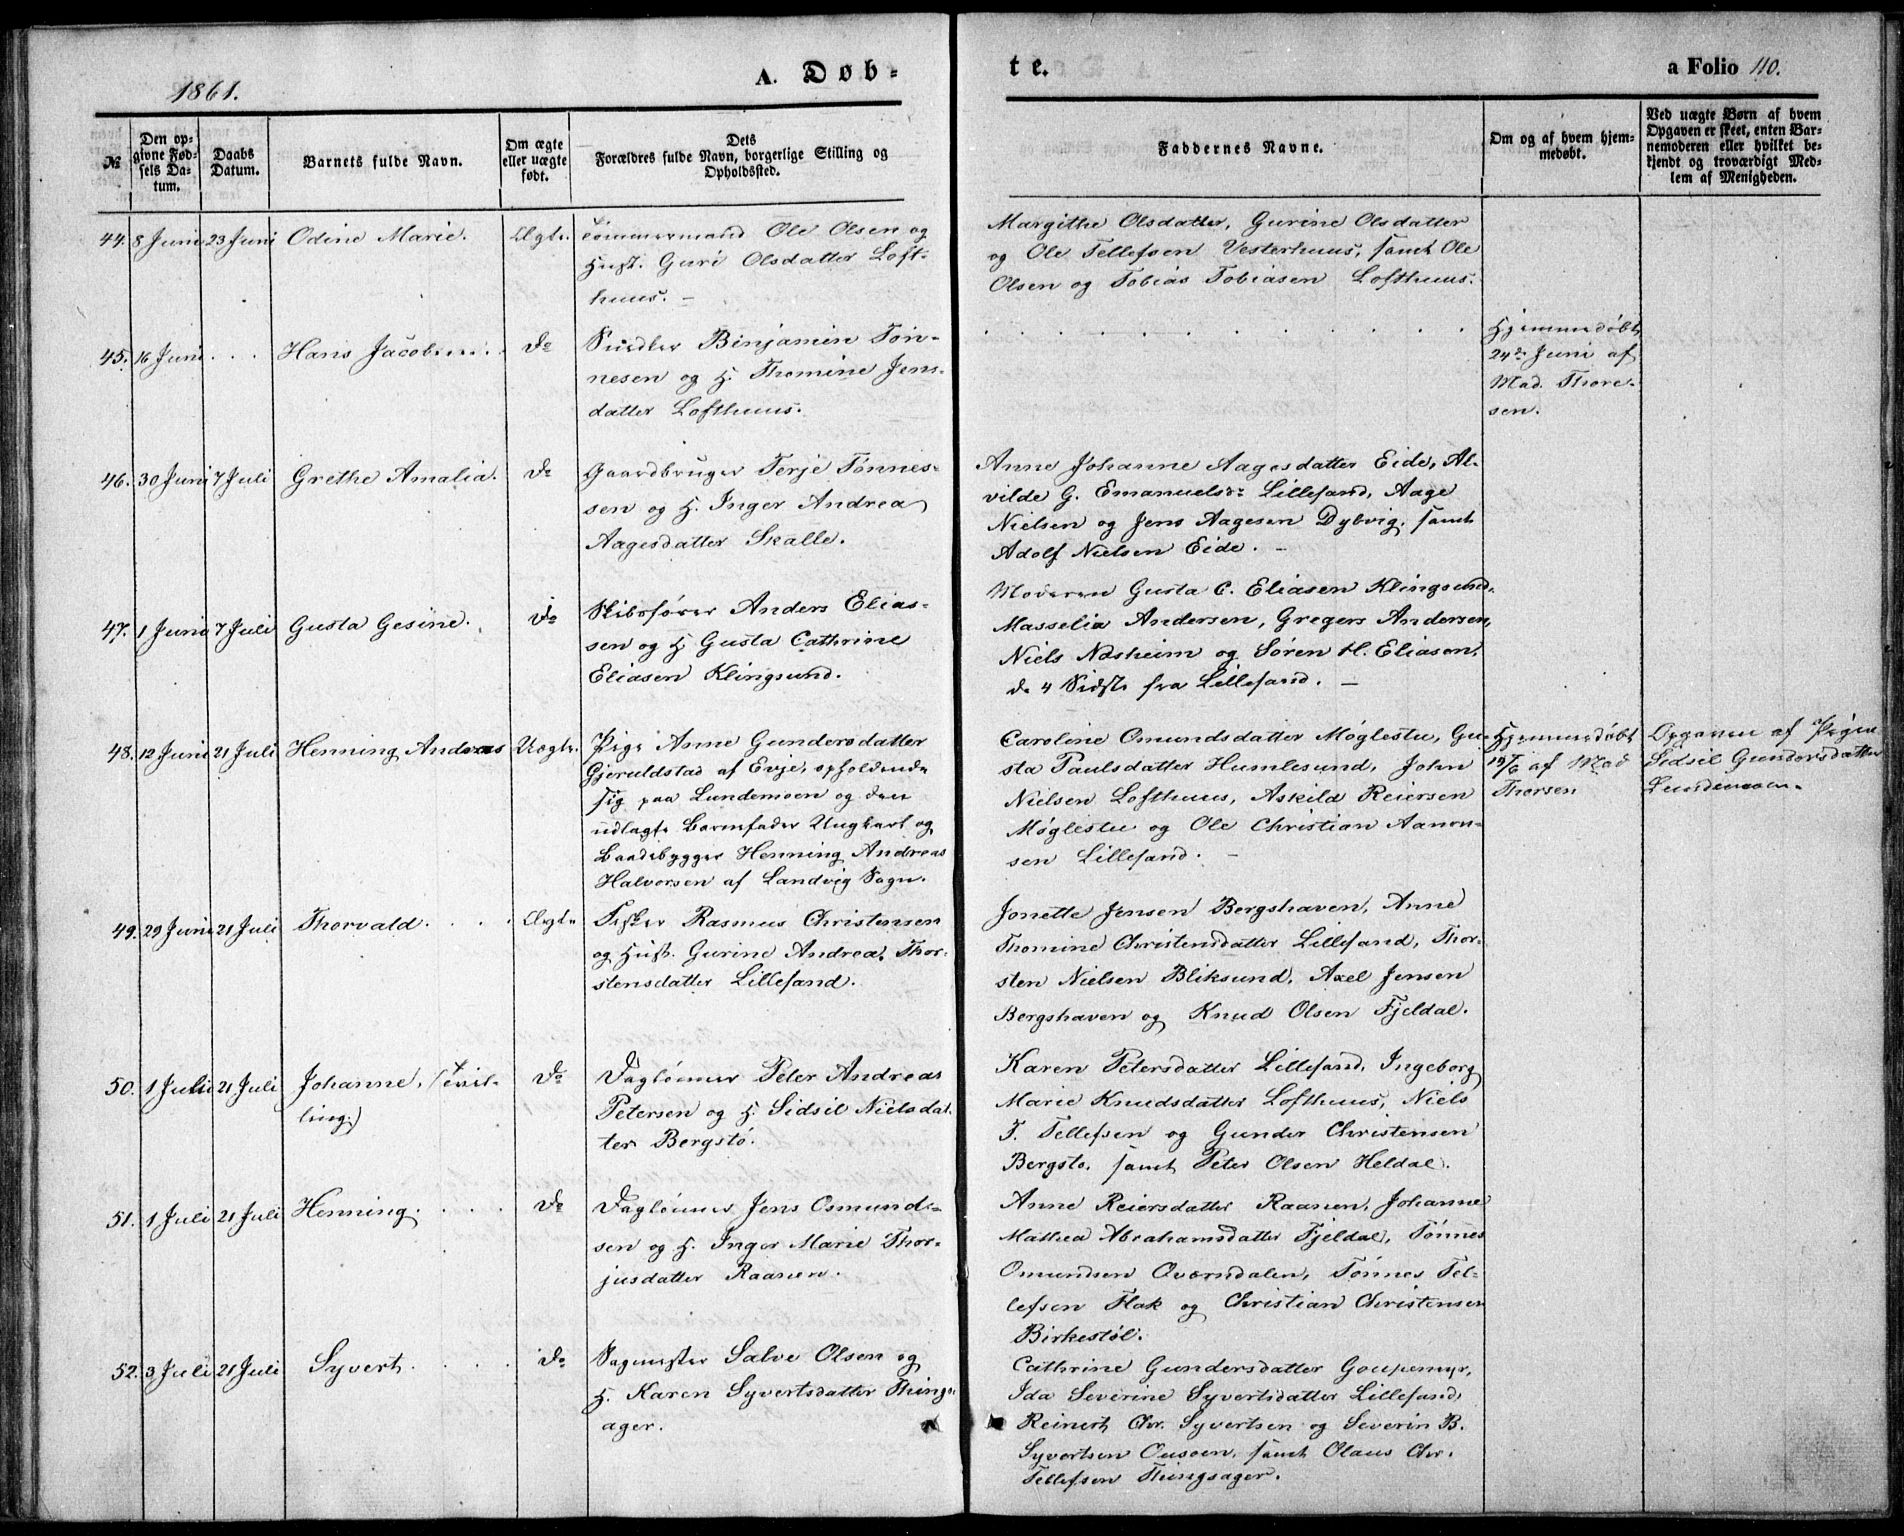 1861.
A. Døb-
te.
a Folio 110.
№
Den op-
givne Fød-
sels Da-
tum.
Daabs
Datum.
Barnets fulde Navn.
Om ægte
eller uægte
født.
Dets
Forældres fulde Navn, borgerlige Stilling og
Opholdssted.
Faddernes Navne.
Om og af hvem hjem-
medøbt.
Ved uægte Børn af hvem
Opgaven er skeet, enten Bar-
nemoderen eller hvilket be-
kjendt og troværdigt Med-
lem af Menigheden.
44. 8 Juni 23 Juni Odine Marie. Ægte.
Tømmermand Ole Olsen og
Hust. Guri Olsdatter Loft-
huus. —
Margithe Olsdatter, Gurine Olsdatter
og Ole Tellefsen Vesterhuus, samt Ole
Olsen og Tobias Tobiasen Lofthuus.
45. 16 Juni . . . Hans Jacobsen. Do
Snedker Binjamin Tøn-
nesen og H. Thomine Jens-
datter Lofthuus.
Hjemmedøbt
24de Juni af
Mad. Thore-
sen.
46. 30 Juni 7 Juli Grethe Amalia. Do
Gaardbruger Terje Tønnes-
sen og H. Inger Andrea
Aagesdatter Skalle.
Anne Johanne Aagesdatter Eide, Al-
vilde G. Emanuelsdr Lillesand, Aage
Nielsen og Jens Aagesen Dybvig, samt
Adolf Nielsen Eide. —
47. 1 Juni 7 Juli Gusta Gesine. Do
Skibsfører Anders Elias-
sen og H Gusta Cathrine
Eliasen Klingsund.
Moderen Gusta C. Eliasen Klingsund,
Masselia Andersen, Gregers Andersen,
Niels Næsheim og Søren H. Eliasen,
de 4 Sidste fra Lillesand. —
48. 12 Juni 21 Juli Henning Andreas Uægte.
Pige Anne Gundersdatter
Gjeruldstad af Evje, opholdende
sig paa Lundemoen og den
udlagte Barnefader Ungkarl og
Baadebygger Henning Andreas
Halvorsen af Landvig Sogn.
Caroline Omundsdatter Møglestu, Gu-
sta Paulsdatter Humlesund, John
Nielsen Lofthuus, Askild Reiersen
Møglestu og Ole Christian Aanon-
sen Lillesand. —
Hjemmedøbt
19/6 af Mad
Thorsen
Opgaven af Pigen
Sidsil Gundersdatter
Lundemoen.
49. 29 Juni 21 Juli Thorvald. . . . . Ægte
Fisker Rasmus Christensen
og Hust. Gurine Andrea Thor-
stensdatter Lillesand.
Jonette Jensen Bergshaven, Anne
Thomine Christensdatter Lillesand, Thor-
sten Nielsen Bliksund, Axel Jensen
Bergshaven og Knud Olsen Fjeldal.
50. 1 Juli 21 Juli Johanne, (Tvil- Do
ling.)
Dagløner Peter Andreas
Petersen og H Sidsil Nielsdat-
ter Bergstø.
Karen Petersdatter Lillesand, Ingeborg
Marie Knudsdatter Lofthuus, Niels
T. Tellefsen og Gunder Christensen
Bergstø, samt Peter Olsen Heldal.
51. 1 Juli 21 Juli Henning. . . . Do
Dagløner Jens Osmund-
sen og H. Inger Marie Thor-
jusdatter Raanen.
Anne Reiersdatter Raanen, Johanne
Mathea Abrahamsdatter Fjeldal, Tønnes
Omundsen Oværndalen, Tønnes Tel-
lefsen Flak og Christian Christensen
Birkestøl.
52. 3 Juli 21 Juli Syvert. . . . . Do
Sagmester Salve Olsen og
H. Karen Syvertsdatter Things-
ager.
Cathrine Gundersdatter Goupemyr,
Ida Severine Syvertsdatter Lillesand,
Reinert Chr. Syvertsen og Severin B.
Syvertsen Ousøen, samt Olaus Chr.
Tellefsen Thingsager.